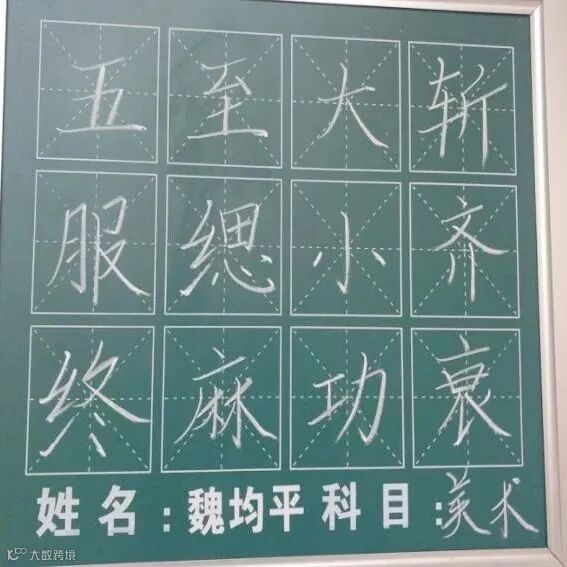 五至大斩
服缌小齐
终麻功衰
姓名:魏均平科目:美术
大数跨境